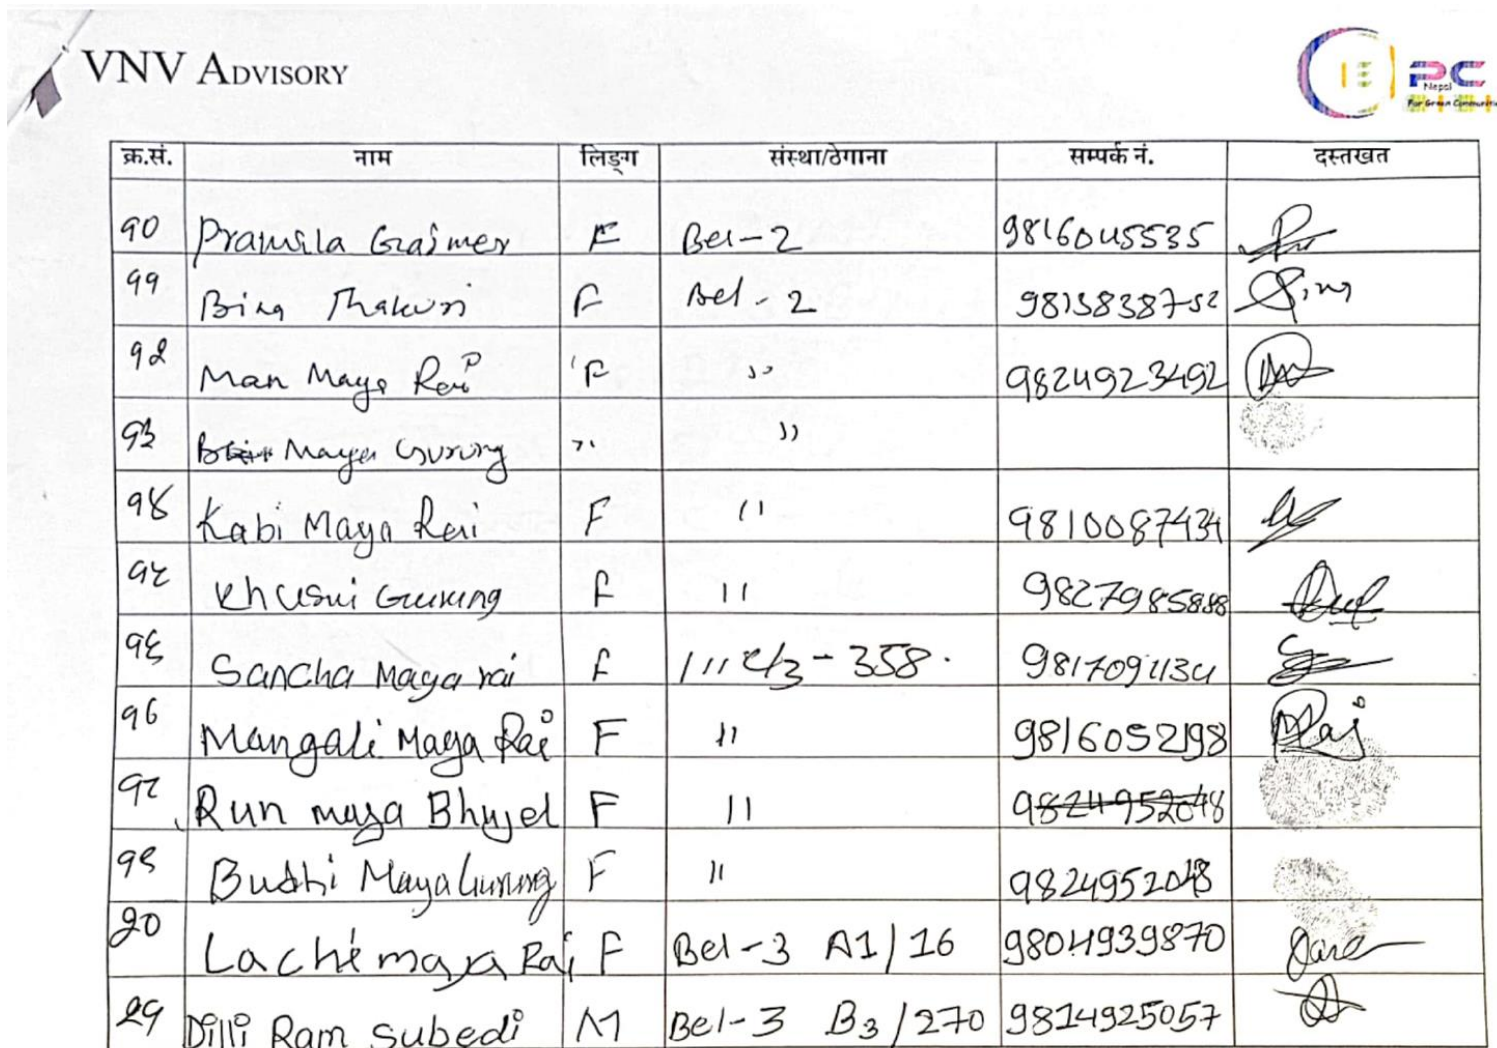 VNV ADVISORY
PC
Nepal
For Green Communities
क्र.सं. नाम लिङ्ग संस्था/ठेगाना सम्पर्क नं. दस्तखत
१० Pramila Gajmer F Bel-2 9816045535
११ Bina Thakuri F Bel-2 9813838752 Bina
१२ Man Maya Rai F " 9824923492
१३ Maya Gurung " "
१४ Kabi Maya Rai F " 9810087434
१५ Khusni Gurung F "
१६ Sancha Maya rai F
१७ Mangali Maya Rai F " 9816052198
१८ Run maya Bhujel F " 9824952048
१९ Budhi Maya Gurung F " 9824952048
२० Lachi maya Rai F Bel-3 A1/16 9804939870
२१ Dilli Ram Subedi M Bel-3 B3/270 9814925057